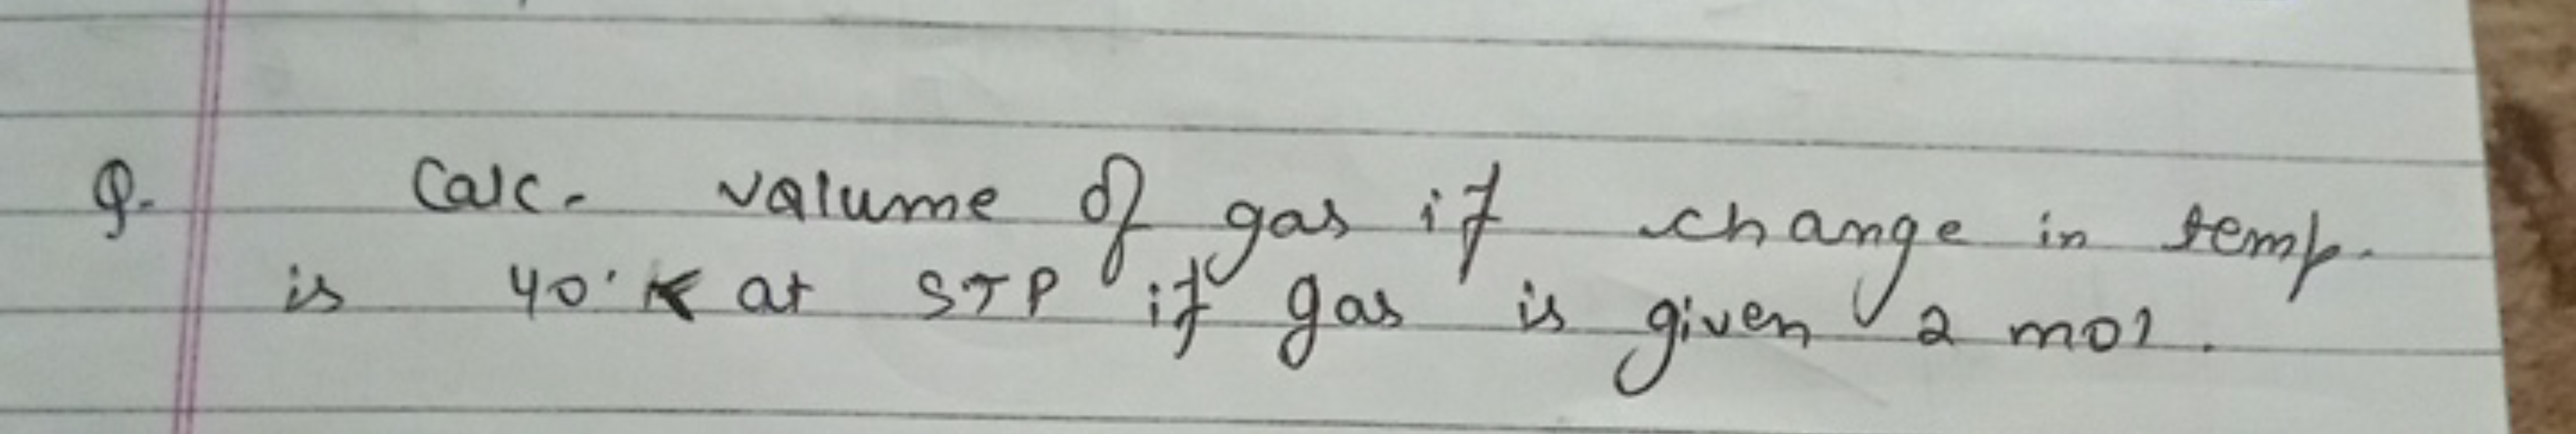 Q. Calc. valume of gas if change in temp.
is 40°K at STP if gas is given 2 mol.